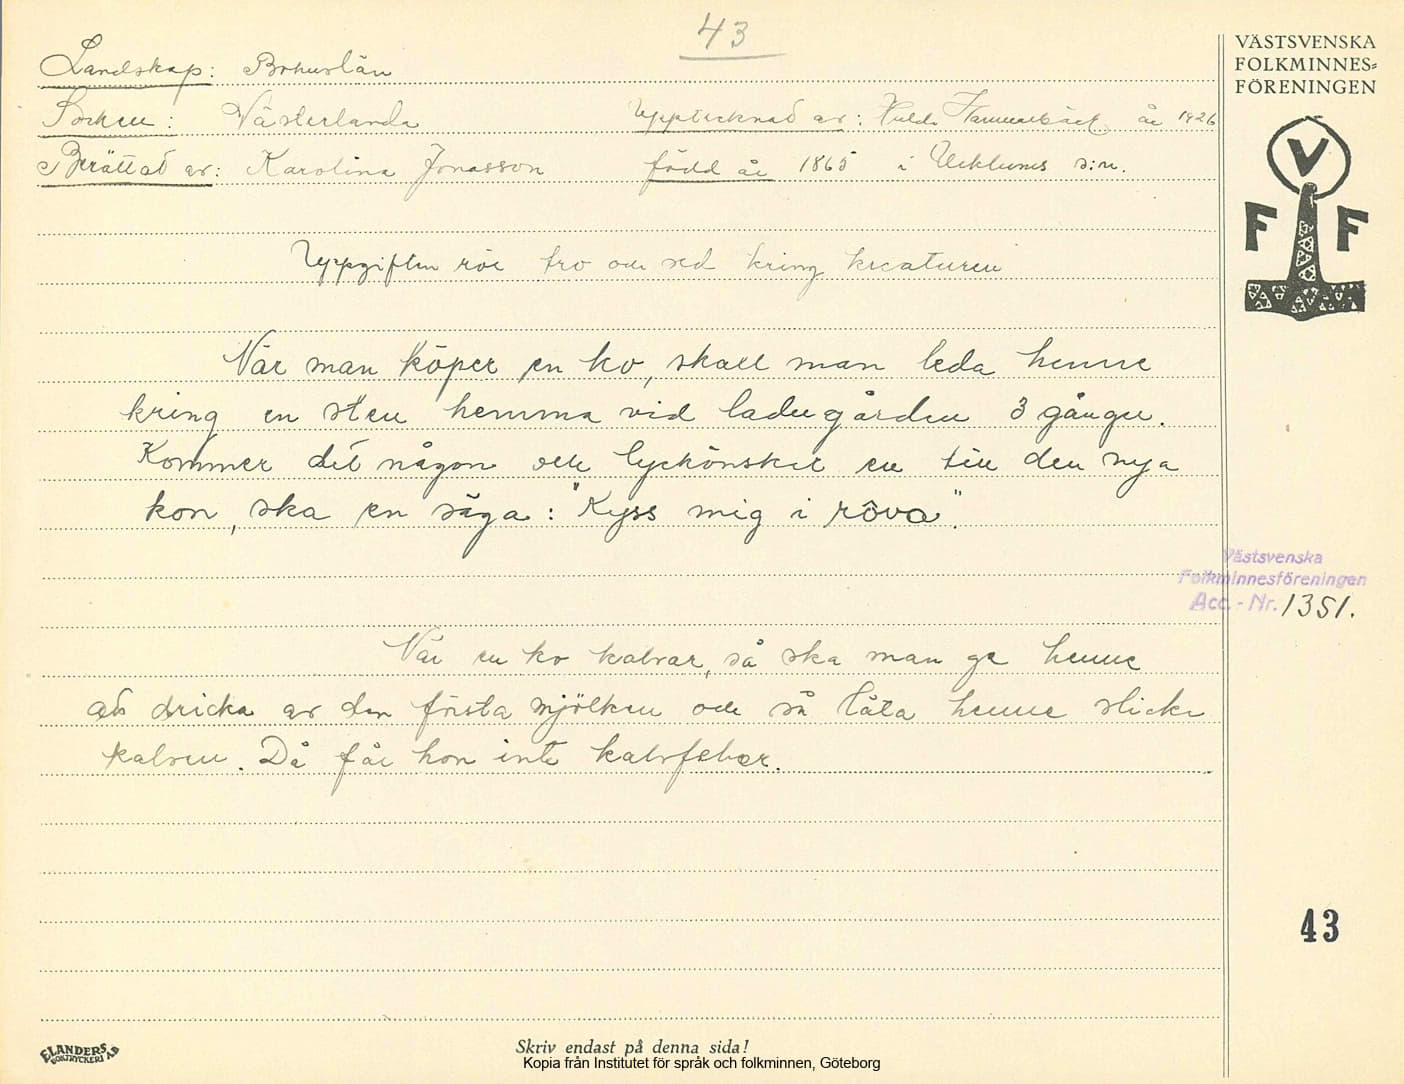 43
Landskap: Bohuslän
Socken: Västerlanda Upptecknad av: Hulda Hammarbäck år 1926
Berättad av: Karolina Jonasson född år 1865 i Ucklums s:n.
Uppgiften rör tro och sed kring kreaturen
När man köper en ko, skall man leda henne
kring en sten hemma vid ladugården 3 gånger.
Kommer det någon och lyckönskar en till den nya
kon, ska en säga: "Kyss mig i röva".
När en ko kalvar, så ska man ge henne
att dricka av den första mjölken och så låta henne slicka
kalven. Då får hon inte kalvfeber.
VÄSTSVENSKA
FOLKMINNES=
FÖRENINGEN
V
F F
Västsvenska
Folkminnesföreningen
Acc. - Nr. 1351.
43
ELANDERS
BOKTRYCKERI AB
Skriv endast på denna sida!
Kopia från Institutet för språk och folkminnen, Göteborg